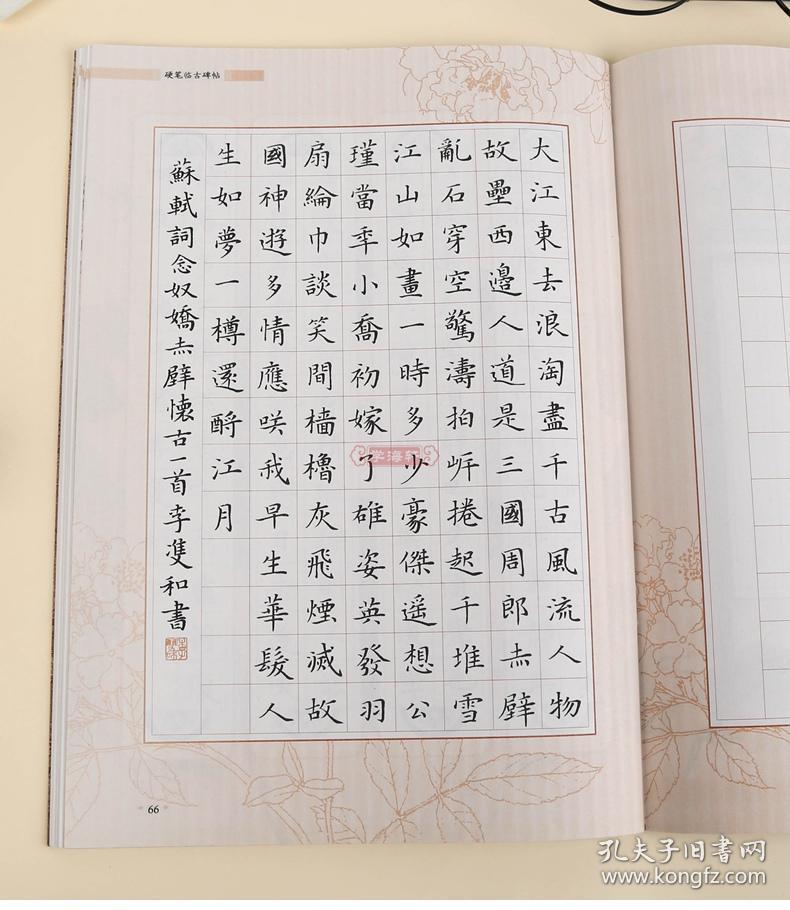 硬笔临古碑帖
大江東去浪淘盡千古風流人物
故壘西邊人道是三國周郎赤壁
亂石穿空驚濤拍岸捲起千堆雪
江山如畫一時多少豪傑遥想公
瑾當年小喬初嫁了雄姿英發羽
扇綸巾談笑間檣櫓灰飛煙滅故
國神遊多情應咲我早生華髮人
生如夢一樽還酹江月
蘇軾詞念奴嬌赤壁懷古一首李雙和書
学海轩
66
孔夫子旧书网
www.kongfz.com